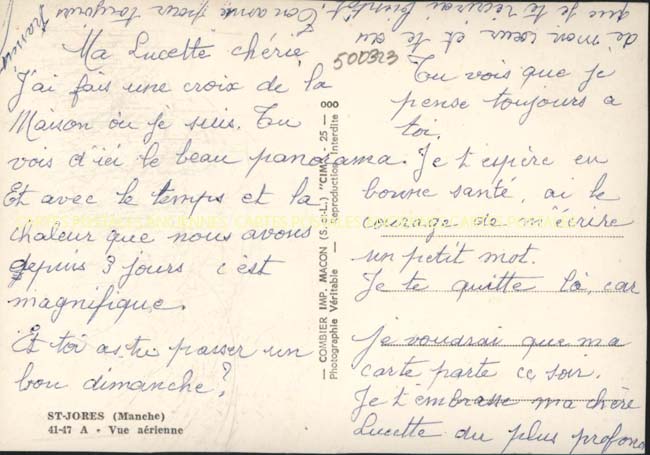 Ma Lucette chérie
J'ai fais une croix de la
Maison ou je suis. Tu
vois d'ici le beau panorama.
Et avec le temps et la
chaleur que nous avons
depuis 3 jours c'est
magnifique.
Et toi as tu passer un
bon dimanche?
ST-JORES (Manche)
41-47 A - Vue aérienne
— COMBIER IMP. MACON (S.-et-L.) "CIM" - 25 — 000
Photographie Véritable — Reproduction Interdite
500323
Tu vois que je
pense toujours a
toi.
Je t'espère en
bonne santé, ai le
courage de m'écrire
un petit mot.
Je te quitte là, car
je voudrai que ma
carte parte ce soir.
Je t'embrasse ma chère
Lucette du plus profond
de mon cœur et te dis
que je te récrirai bientôt. Ton amie pour toujours
CARTES POSTALES ANCIENNES CARTES POSTALES ANCIENNES CARTES POSTALES